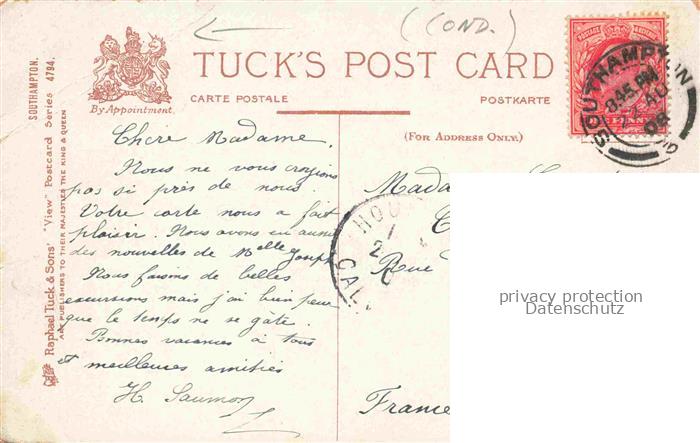 (COND.)
TUCK'S POST CARD
By Appointment.
CARTE POSTALE
POSTKARTE
(FOR ADDRESS ONLY.)
SOUTHAMPTON.
Raphael Tuck & Sons' "View" Postcard Series 4794.
ART PUBLISHERS TO THEIR MAJESTIES THE KING & QUEEN
POSTAGE
PENNY
SOUTHAMPTON
8.45 PM
AU
08
Chere Madame,
Nous ne vous croyions
pas si près de nous.
Votre carte nous a fait
plaisir. Nous avons eu aussi
des nouvelles de Melle Joseph
Nous faisons de belles
excursions mais j'ai bien peur
que le temps ne se gâte.
Bonnes vacances à tous
et meilleures amitiés
H. Saumon
Mada
Rue
France
HOU
CAL
privacy protection
Datenschutz